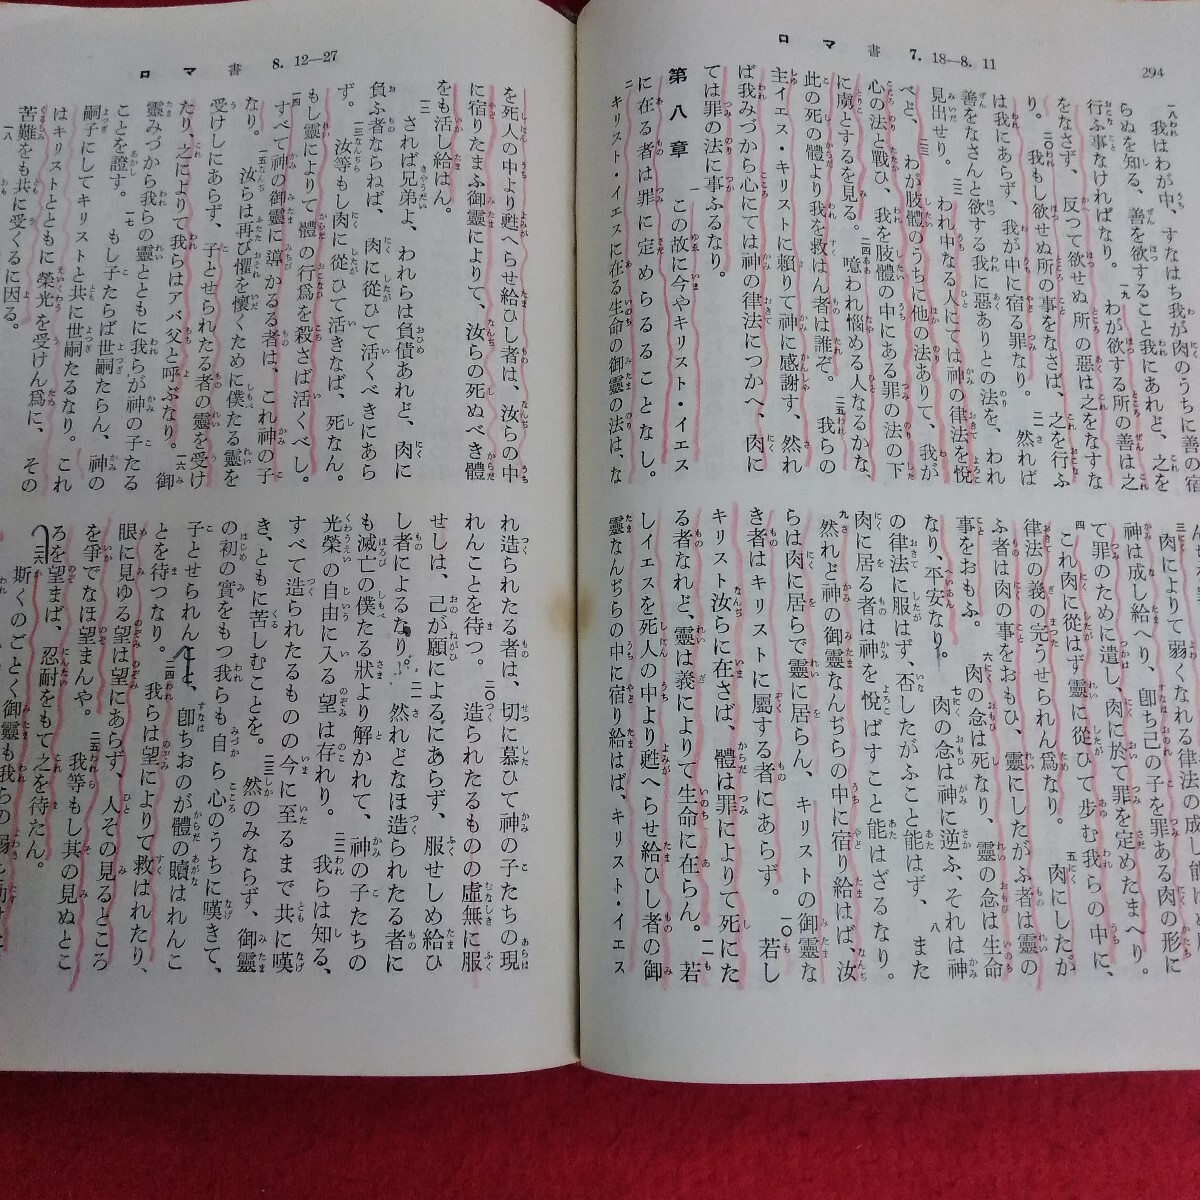 ロマ書 7. 18―8. 11
294
一八我はわが中、すなはち我が肉のうちに善の宿
らぬを知る、善を欲すること我にあれど、之を
行ふ事なければなり。 一九わが欲する所の善は之
をなさず、反つて欲せぬ所の惡は之をなすな
り。 二〇我もし欲せぬ所の事をなさば、之を行ふ
は我にあらず、我が中に宿る罪なり。 二一然れば
善をなさんと欲する我に惡ありとの法を、われ
見出せり。 二二われ中なる人にては神の律法を悅
べど、 二三わが肢體のうちに他の法ありて、我が
心の法と戰ひ、我を肢體の中にある罪の法の下
に虜とするを見る。 二四噫われ惱める人なるかな、
此の死の體より我を救はん者は誰ぞ。 二五我らの
主イエス・キリストに賴りて神に感謝す、然れ
ば我みづから心にては神の律法につかへ、肉に
ては罪の法に事ふるなり。
第八章 一この故に今やキリスト・イエス
に在る者は罪に定めらるることなし。
二キリスト・イエスに在る生命の御靈の法は、な
肉によりて弱くなれる律法の成し能
神は成し給へり、卽ち己の子を罪ある肉の形に
て罪のために遣し、肉に於て罪を定めたまへり。
四これ肉に從はず靈に從ひて步む我らの中に、
律法の義の完うせられん爲なり。 五肉にしたが
ふ者は肉の事をおもひ、靈にしたがふ者は靈の
事をおもふ。 六肉の念は死なり、靈の念は生命
なり、平安なり。 七肉の念は神に逆ふ、それは神
の律法に服はず、否したがふこと能はず、 八また
肉に居る者は神を悅ばすこと能はざるなり。
九然れど神の御靈なんぢらの中に宿り給はば、汝
らは肉に居らで靈に居らん、キリストの御靈な
き者はキリストに屬する者にあらず。 一〇若し
キリスト汝らに在さば、體は罪によりて死にた
る者なれど、靈は義によりて生命に在らん。 一一若
しイエスを死人の中より甦へらせ給ひし者の御
靈なんぢらの中に宿り給はば、キリスト・イエス
ロマ書 8. 12―27
を死人の中より甦へらせ給ひし者は、汝らの中
に宿りたまふ御靈によりて、汝らの死ぬべき體
をも活し給はん。
一二されば兄弟よ、われらは負債あれど、肉に
負ふ者ならねば、肉に從ひて活くべきにあら
ず。 一三汝等もし肉に從ひて活きなば、死なん。
もし靈によりて體の行爲を殺さば活くべし。
一四すべて神の御靈に導かるる者は、これ神の子
なり。 一五汝らは再び懼を懷くために僕たる靈を
受けしにあらず、子とせられたる者の靈を受け
たり、之によりて我らはアバ父と呼ぶなり。 一六御
靈みづから我らの靈とともに我らが神の子たる
ことを證す。 一七もし子たらば世嗣たらん、神の
嗣子にしてキリストと共に世嗣たるなり。これ
はキリストとともに榮光を受けん爲に、その
苦難をも共に受くるに因る。
一八
れ造られたる者は、切に慕ひて神の子たちの現
れんことを待つ。 二〇造られたるものの虛無に服
せしは、己が願によるにあらず、服せしめ給ひ
し者によるなり。 二一然れどなほ造られたる者に
も滅亡の僕たる狀より解かれて、神の子たちの
光榮の自由に入る望は存れり。 二二我らは知る、
すべて造られたるものの今に至るまで共に嘆
き、ともに苦しむことを。 二三然のみならず、御靈
の初の實をもつ我らも自ら心のうちに嘆きて、
子とせられんこと、卽ちおのが體の贖はれんこ
とを待つなり。 二四我らは望によりて救はれたり、
眼に見ゆる望は望にあらず、人その見るところ
を爭でなほ望まんや。 二五我等もし其の見ぬとこ
ろを望まば、忍耐をもて之を待たん。
二六斯くのごとく御靈も我らの弱